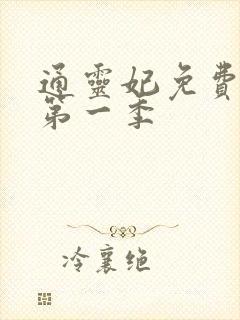 通靈妃免費
第一季
冷襄绝